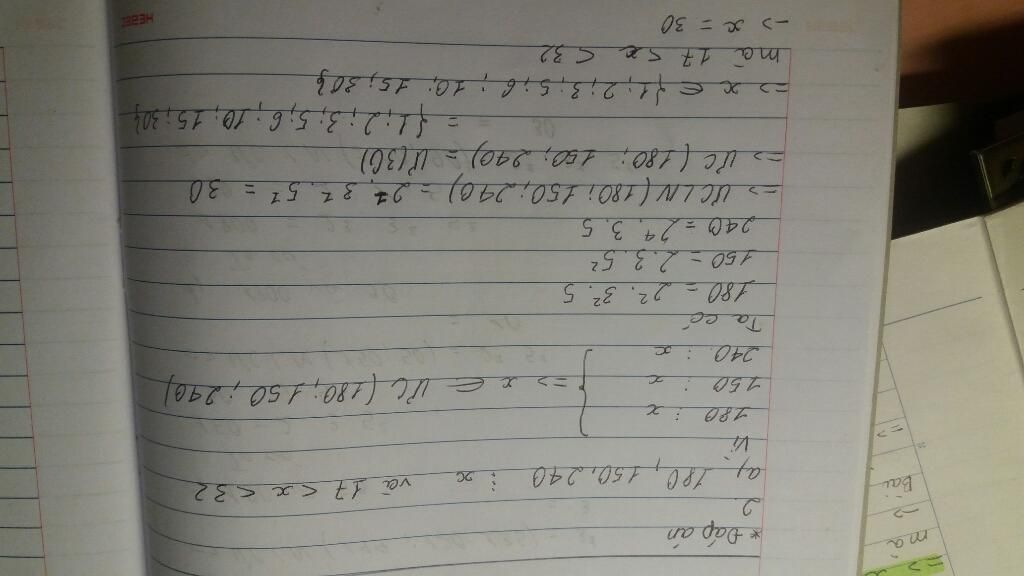 * Đáp án
2.
a, 180, 150, 240 ⋮ x và 17 < x < 32
Vì
180 ⋮ x
150 ⋮ x
240 ⋮ x
} => x ∈ ƯC (180; 150; 240)
Ta có
180 = 2². 3². 5
150 = 2.3.5²
240 = 2⁴. 3. 5
=> ƯCLN (180; 150; 240) = 2¹. 3¹. 5¹ = 30
=> ƯC (180; 150; 240) = Ư(30)
= {1; 2; 3; 5; 6; 10; 15; 30}
=> x ∈ {1; 2; 3; 5; 6; 10; 15; 30}
mà 17 < x < 32
-> x = 30
=>
mà
->
Bài
=
=>